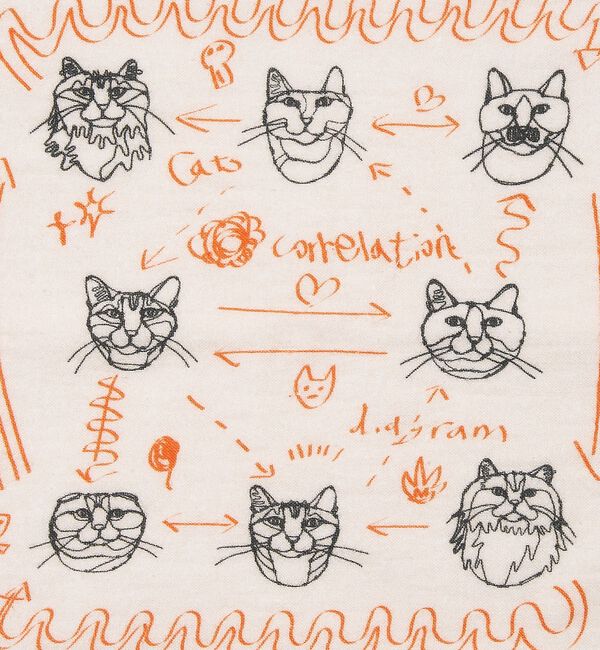 Cats
correlation
diagram